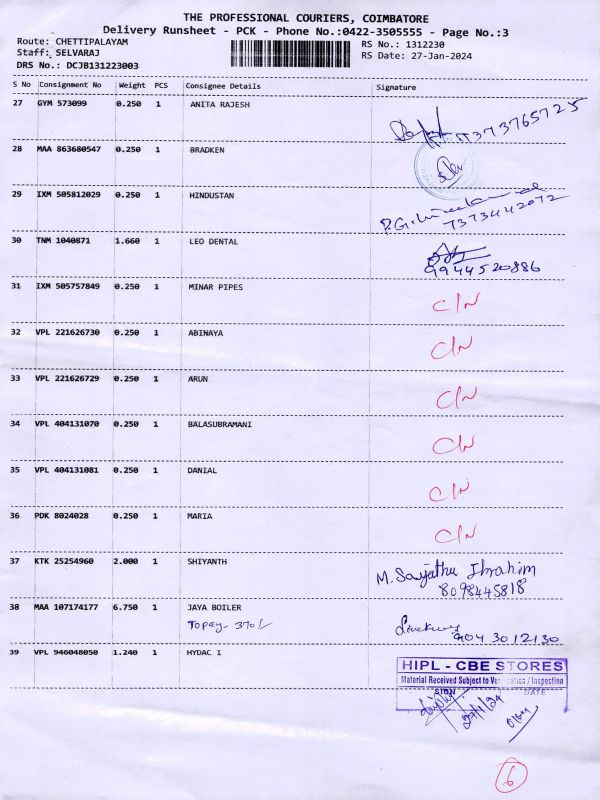 THE PROFESSIONAL COURIERS, COIMBATORE
Delivery Runsheet - PCK - Phone No.:0422-3505555 - Page No.:3
Route: CHETTIPALAYAM RS No.: 1312230
Staff: SELVARAJ RS Date: 27-Jan-2024
DRS No.: DCJB131223003
S No Consignment No Weight PCS Consignee Details Signature
27 GYM 573099 0.250 1 ANITA RAJESH
28 MAA 863680547 0.250 1 BRADKEN
29 IXM 505812029 0.250 1 HINDUSTAN
7373442072
30 TNM 1040871 1.660 1 LEO DENTAL
9944520886
31 IXM 505757849 0.250 1 MINAR PIPES C/N
32 VPL 221626730 0.250 1 ABINAYA C/N
33 VPL 221626729 0.250 1 ARUN C/N
34 VPL 404131070 0.250 1 BALASUBRAMANI C/N
35 VPL 404131081 0.250 1 DANIAL C/N
36 PDK 8024028 0.250 1 MARIA C/N
37 KTK 25254960 2.000 1 SHIYANTH M. Ibrahim
8098445818
38 MAA 107174177 6.750 1 JAYA BOILER
Topay- 370/- 9043012130
39 VPL 946048050 1.240 1 HYDAC I
HIPL - CBE STORES
Material Received Subject to Verification / Inspection
SIGN DATE
27/1/24
6